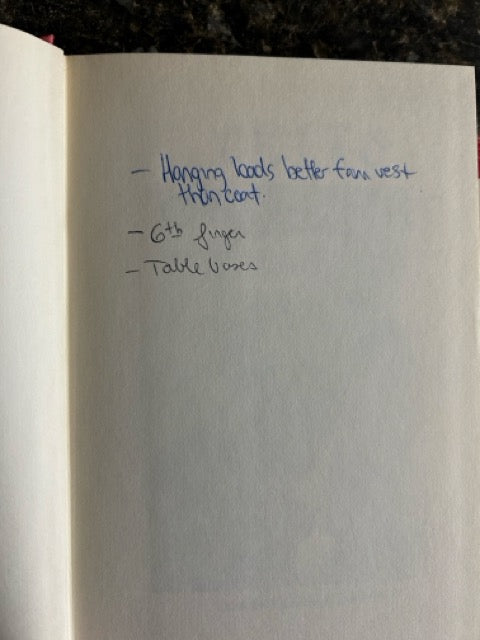 - Hanging loads better from vest
than coat.
- 6th finger
- Table vases